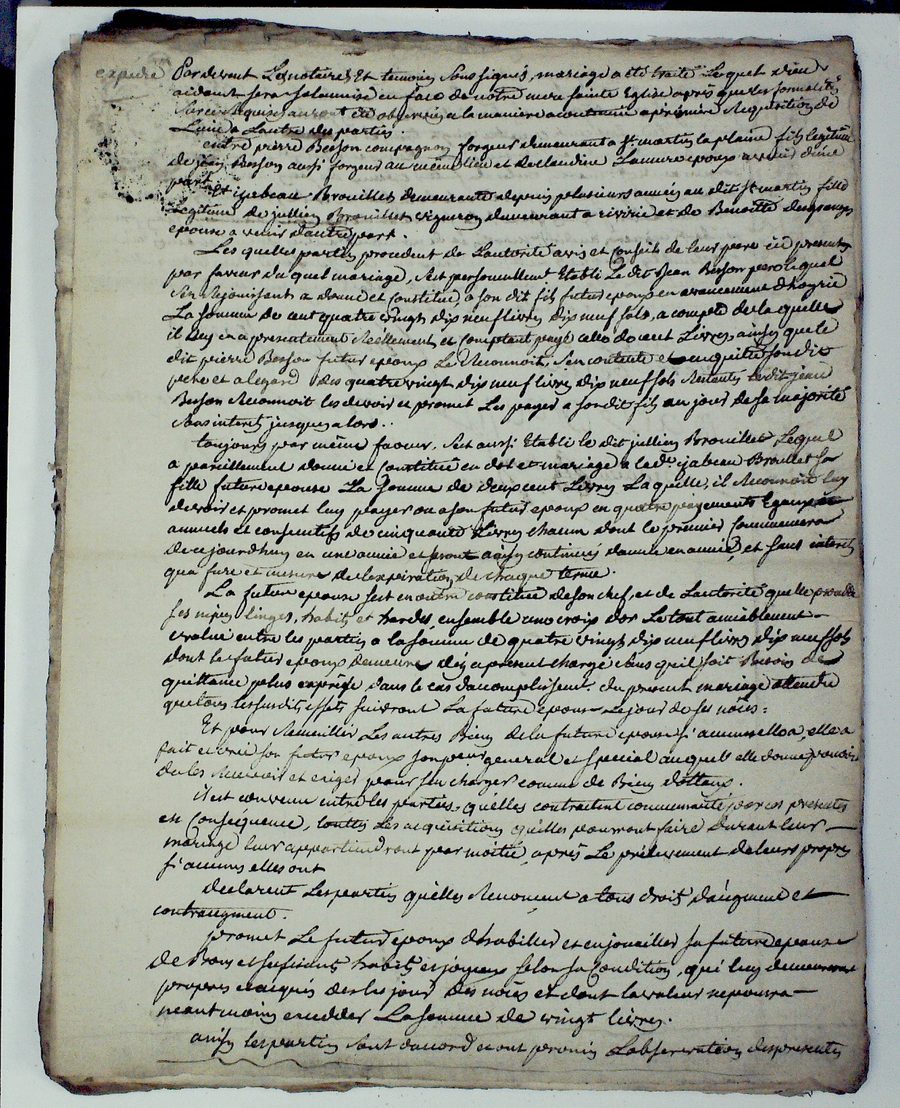 expedié
Par devant Les notaires Et temoins Soussignés, mariage a été traité Lequel dieu
aidant sera Solannisé en face de notre mere Sainte Eglise apres que les formalités
Sur ce Requises auront été observées a la maniere acoutumée a premiere Requisition de
L'une a L'autre des parties.
entre pierre Besson compagnon forgeur demeurant a St martin la plaine fils legitime
de jean Besson aussi forgeur au même lieu et de Claudine epoux a venir d'une
part
Et ysabeau Brouillet demeurante depuis plusieurs années au dit St martin fille
Legitime de jullien Brouillet vigneron demeurant a rivirie et de Benoitte
epouse a venir d'autre part.
Les quelles parties procedent de L'autorité avis et conseils de leur pere ici presents
par faveur du quel mariage, s'est personnellement Etabli Le dit Jean Besson pere lequel
s'en Rejouissant a donné et constitué a son dit fils futur epoux en avancement d'hoyrie
La somme de cent quatre vingt dix neuf livres dix neuf sols, a compte de la quelle
il luy en a presentement Réellement et comptant payé celle de cent Livres, ainsy que le
dit pierre Besson futur epoux Le Reconnoit, s'en contente et en quitte son dit
pere et a l'egard des quatre vingt dix neuf livres dix neuf sols Restants le dit jean
Besson Reconnoit les devoir et promet Les payer a son dit fils au jour de sa majorité
sans interets jusques a lors.
toujours par même faveur s'est aussi Etabli le dit jullien Brouillet Lequel
a pareillement donné et constitué en dot et mariage a lad. ysabeau Broullet sa
fille future epouse La somme de deux cent Livres Laquelle, il Reconnoit luy
devoir et promet luy payer ou a son futur epoux en quatre payements Egaux
annuels et consecutifs de cinquante Livres chacun dont le premier commencera
de ce jourd'huy en une année et seront ainsy continués d'année en année, et sans interets
qu'a fure et mesure de l'expiration de chaque terme.
La future epouse s'est en outre constituée de son chef, et de L'autorité que le procede
ses nipes linges, habits et hardes, ensemble une croix d'or Le tout amiablement
evalué entre les parties a la somme de quatre vingt dix neuf livres dix neuf sols
dont le futur epoux demeure dès a present chargé sans qu'il soit Besoin de
quittance plus expresse, dans le cas d'accomplissement du present mariage attendu
que tous les susdits effets suivront La future epouse Le jour de ses nôces.
Et pour Recueillir Les autres Biens de la future epouse si aucuns elle a, elle a
fait et créé son futur epoux son procureur general et special auquel elle donne pouvoir
de les Recevoir et exiger pour s'en charger comme de Biens dotaux.
il est convenu entre les parties, qu'elles contractent communauté par ces presentes
en consequence, touttes Les acquisitions qu'elles pourront faire durant leur
mariage leur appartiendront par moitié, après Le prélevement de leurs propres
si aucuns elles ont
declarent Les parties qu'elles Renoncent a tous droits d'augment et
contraugment.
promet Le futur epoux d'habiller et enjoueiller sa future epouse
de Bons et suffisants habits et joyaux selon sa Condition, qui luy demeureront
propres et acquis des les jour des nôces et dont la valeur ne pourra
neantmoins excedder La somme de vingt livres.
ainsy les parties sont d'accord et ont promis L'observation des presentes